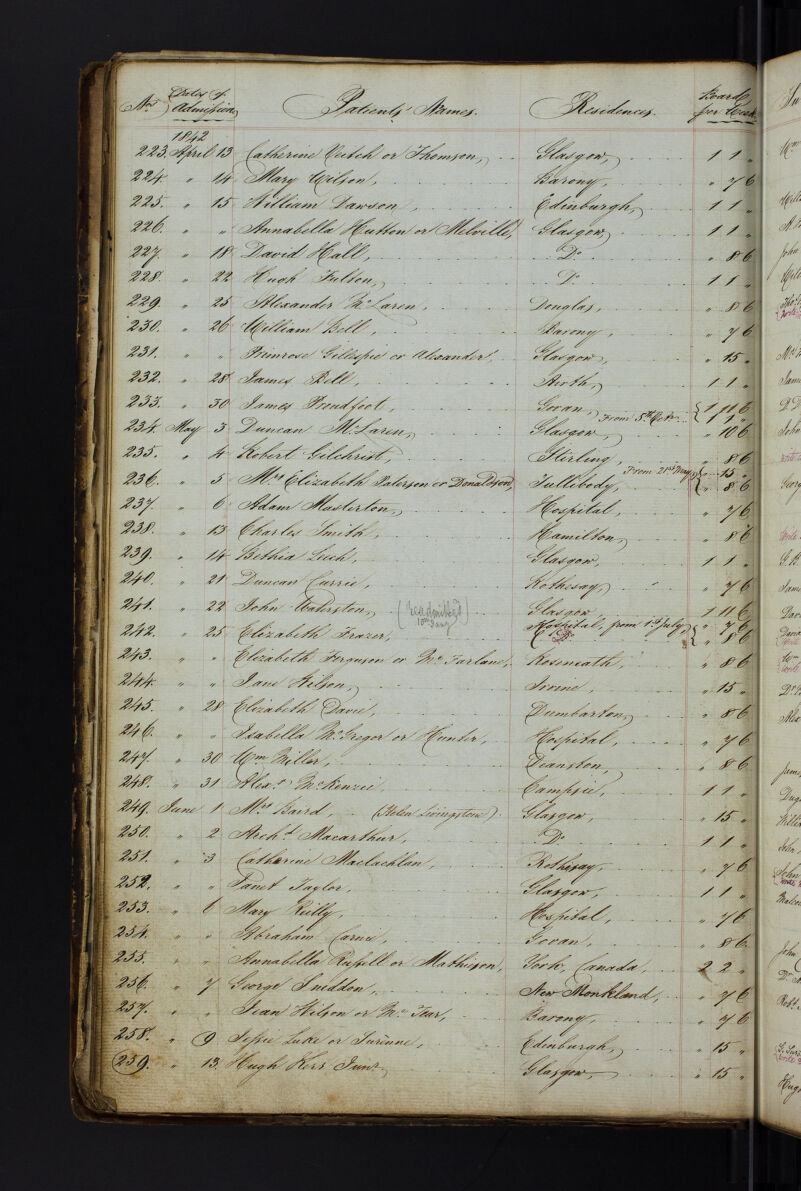 Nos Dates of Admission Patients' Names. Residences. Board per Week
1842
223. April 13 Catherine Veitch or Thomson, Glasgow, 1 1 "
224. " 14 Mary Wilson, Barony, " 7 6
225. " 15 William Dawson, Edinburgh, 1 1 "
226. " " Annabella Hutton or Melville, Glasgow, 1 1 "
227. " 18 David Hall, Do " 8 6
228. " 22 Hugh Fulton, Do 1 1 "
229 " 25 Alexander McLaren, Douglas, " 8 6
230. " 26 William Bell, Barony, " 7 6
231. " " Primrose Gillespie or Alexander, Glasgow, " 15 "
232. " 28 James Bell, Perth, 1 1 "
233. " 30 James Proudfoot, Govan, From 5th Octr { 1 11 6
1 1 "
234. May 3 Duncan McLaren, Glasgow, " 10 6
235. " 4 Robert Gilchrist, Stirling, " 8 6
236. " 5 Mrs Elizabeth Paterson or Donaldson, Tullibody, From 21st May { " 15 "
" 8 6
237. " 6 Adam Masterton, Hospital, " 7 6
238. " 13 Charles Smith, Hamilton, " 8 6
239. " 14 Bethia Leech, Glasgow, 1 1 "
240. " 21 Duncan Currie, Rothesay, " 7 6
241. " 22 John Waterston, (readmitted 10th Jany) Glasgow, 1 11 6
242. " 25 Elizabeth Frazer, Hospital, from 1st July, { " 7 6
Do " 8 6
243. " " Elizabeth Ferguson or McFarlane, Roseneath, " 8 6
244. " " Jane Wilson, Irvine, " 15 "
245. " 28 Elizabeth Davie, Dumbarton, " 8 6
246. " " Isabella McGregor or Hunter, Hospital, " 7 6
247. " 30 Wm Miller, Deanston, " 8 6
248. " 31 Alexr McKenzie, Campsie, 1 1 "
249. June 1 Mrs Baird, (Helen Livingstone) Glasgow, " 15 "
250. " 2 Archd Macarthur, Do 1 1 "
251. " 3 Catherine Maclachlan, Rothesay, " 7 6
252. " " Janet Taylor, Glasgow, 1 1 "
253. " 6 Mary Reilly, Hospital, " 7 6
254. " " Abraham Govan, " 8 6
255. " " Annabella Russell or Mathison, York, Canada, 2 2 "
256. " 7 George Sneddon, New Monkland, " 7 6
257. " " Jean Wilson or Barony, " 7 6
258. " 9 Jessie Luke or Edinburgh, " 15 "
259. " 13 Hugh Kerr Junr, Glasgow, " 15 "